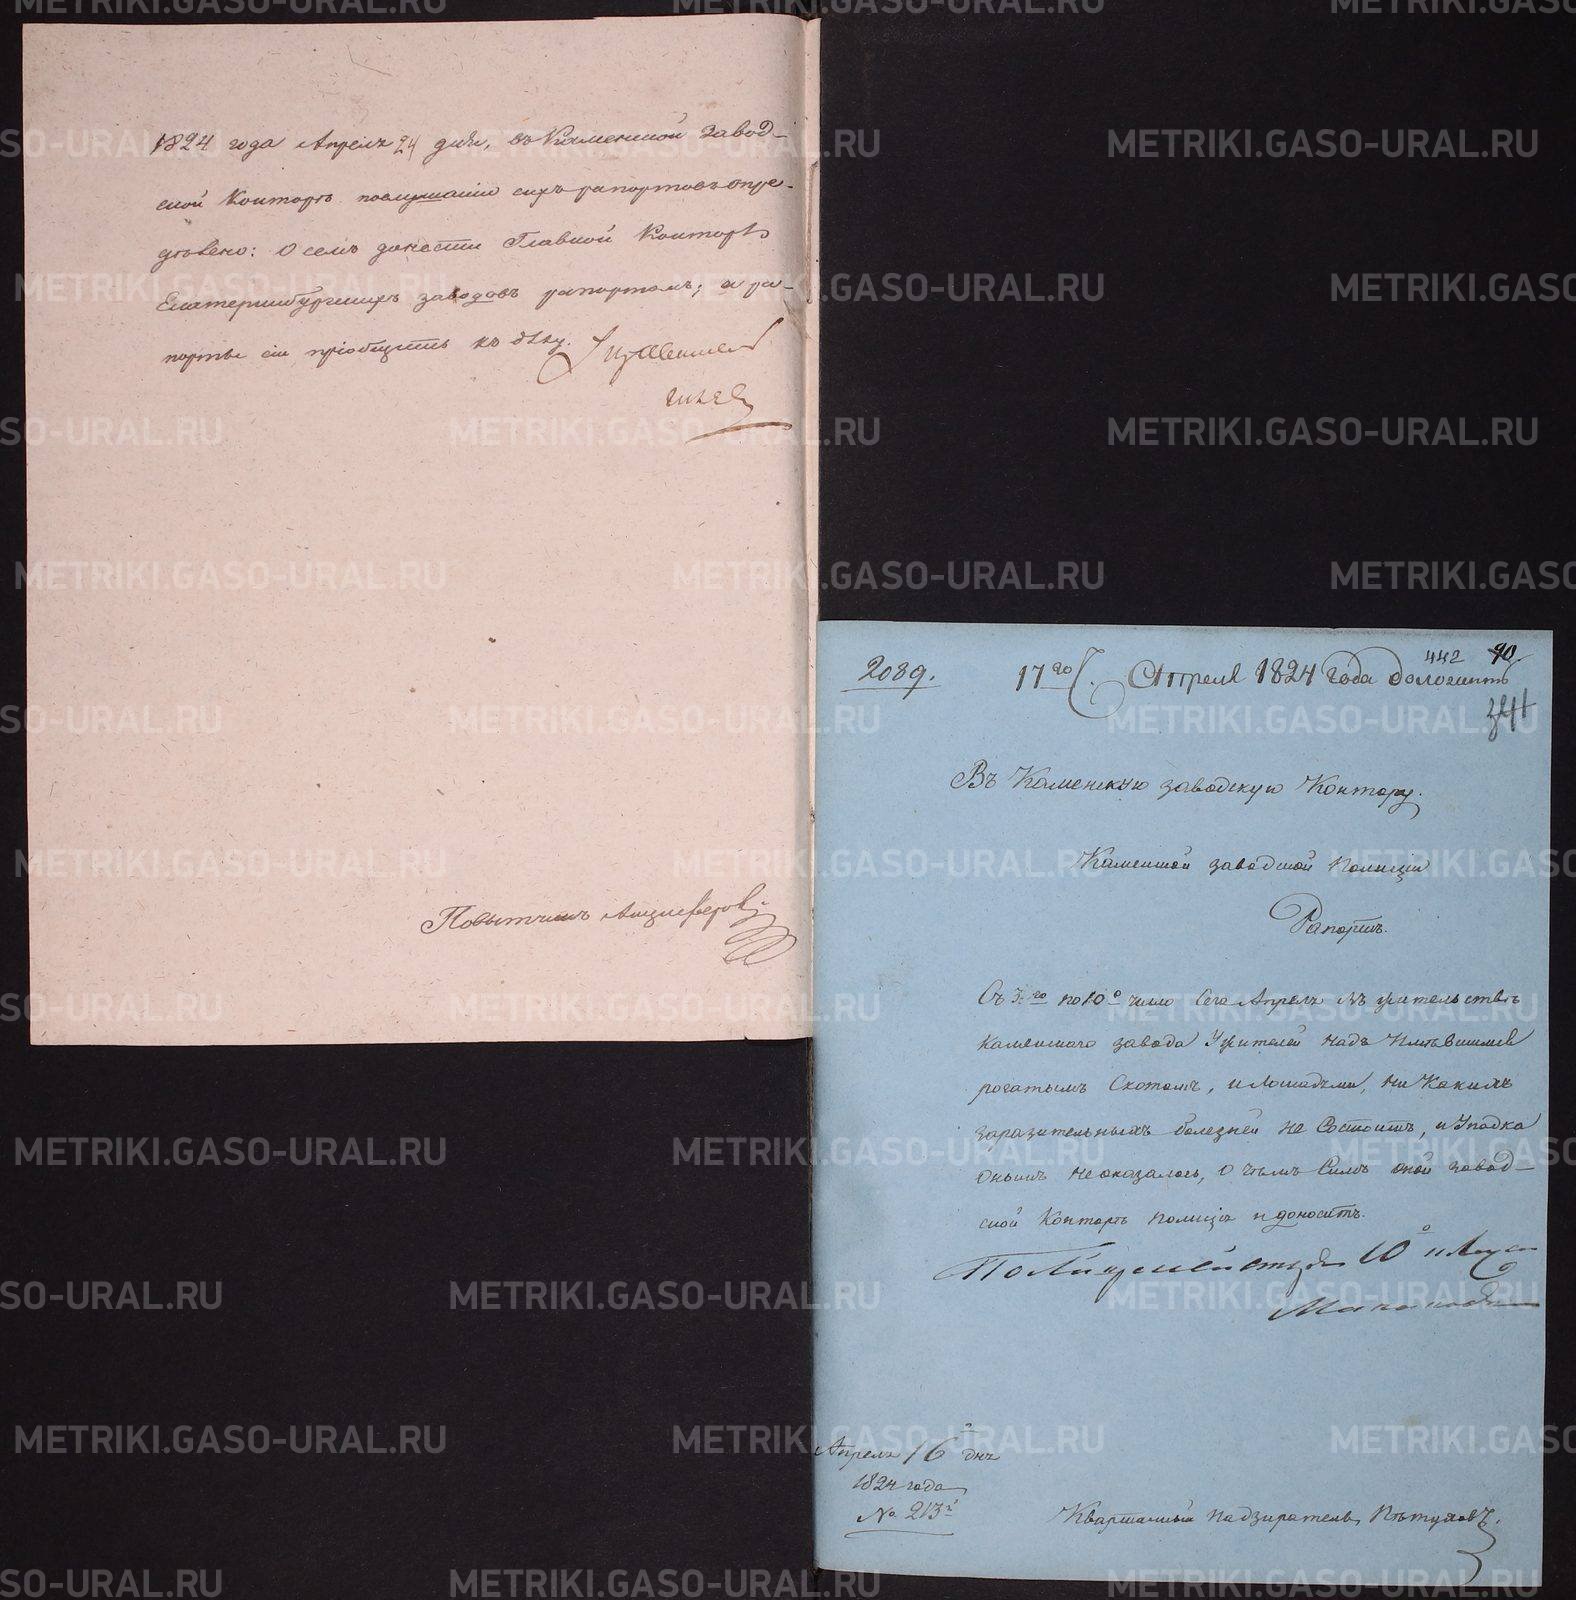 1824 года Апреля 24 дня, въ Каменской завод-
ской Конторѣ послушании сихъ рапортовъ опре-
дѣлено: О семъ донести Главной Конторѣ
Екатеринбургскихъ заводовъ рапортомъ; а ра-
порты сіи пріобщить къ дѣлу.
Повытчикъ Анциферовъ
2089. 17го Апреля 1824 года доложить
442 90
Въ Каменскую заводскую Контору.
Каменской заводской полиціи
Рапортъ.
Съ 3.го по 10е число сего Апреля въ жительствѣ
каменскаго завода у жителей надъ имѣвшимся
рогатымъ скотомъ, и лошадьми, ни какихъ
заразительныхъ болезней не состоитъ, и упадка
онымъ не оказалось, о чемъ симъ оной завод-
ской конторѣ полиція и доноситъ.
Полицмейстеръ 10го класса
Апреля 16 дня
1824 года
№ 213й
Квартальный надзиратель Пѣтуховъ.
METRIKI.GASO-URAL.RU